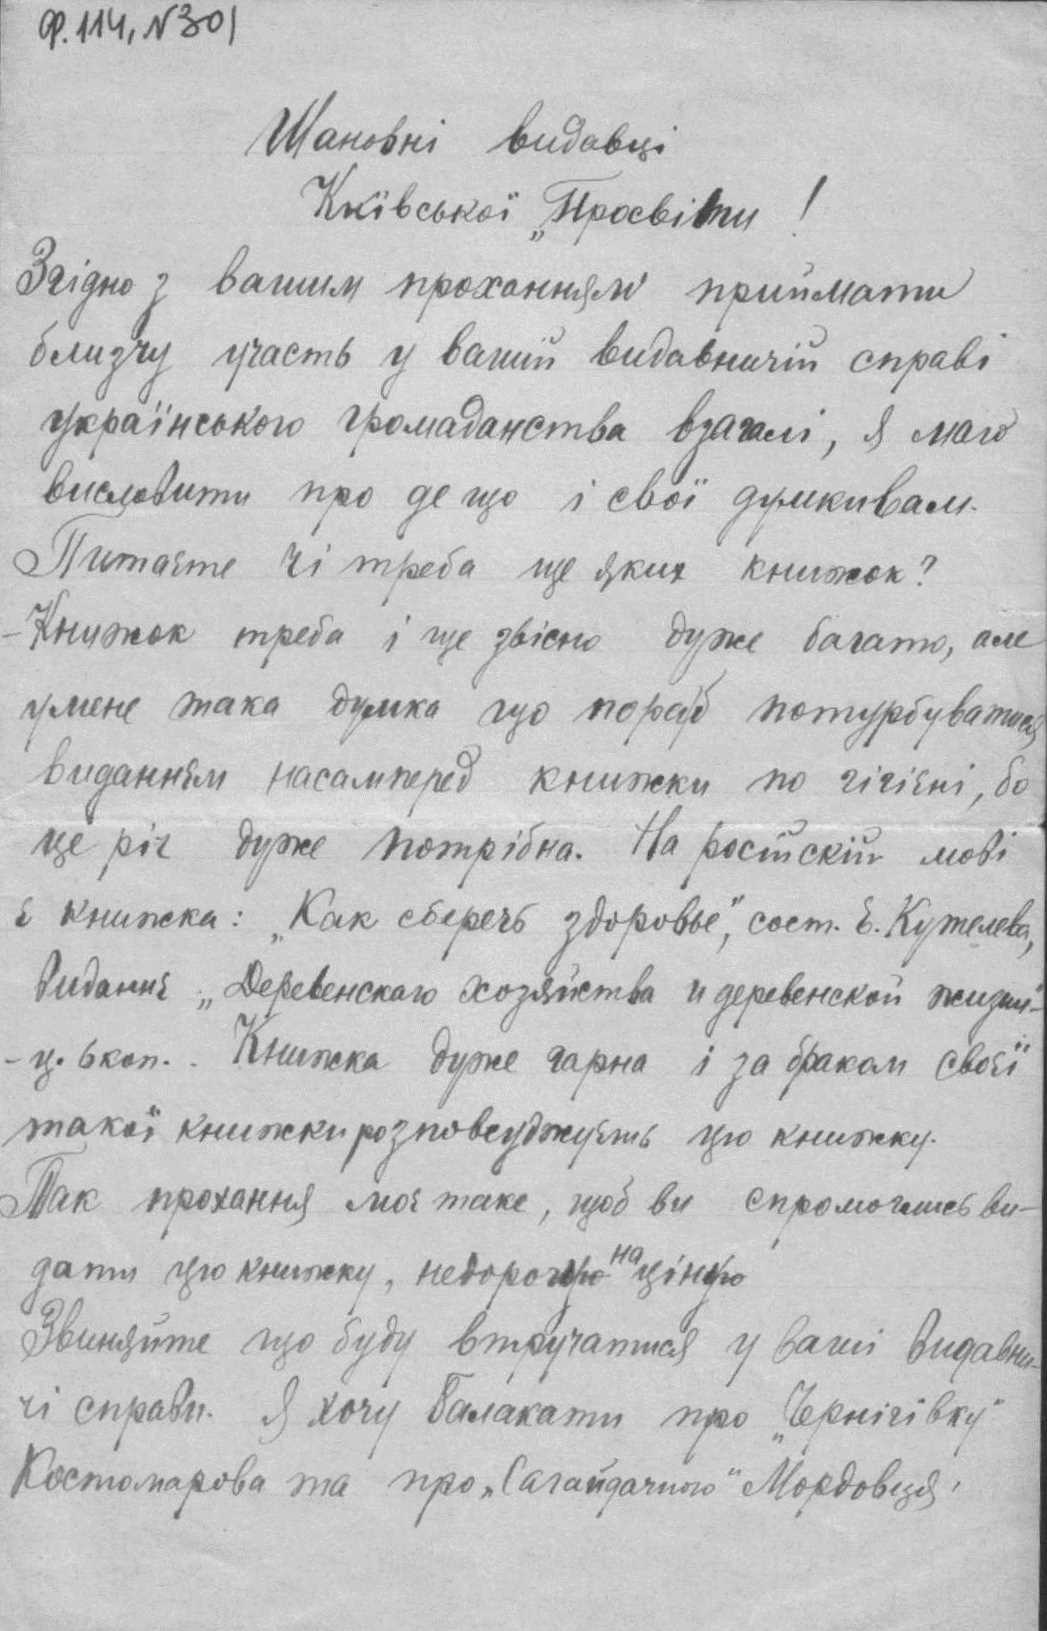 Ф. 114, N 301
Шановні видавці
Київської „Просвіти !
Згідно з вашим проханням приймати
близчу участь у вашій видавничій справі
українського громаданства взагалі, я маю
висловити про де що і свої думки вам.
Питаєте чі треба ще яких книжок?
- Книжок треба і ще звісно дуже багато, але
у мене така думка що потурбуватися
виданнєм насамперед книжки по гігієні, бо
це річ дуже потрібна. На росийскій мові
є книжка: „Как сберечь здоровье", сост. Е. Кутелева,
виданнє „Деревенскаго хозяйства и деревенской жизни"-
- ц. 6 коп. . Книжка дуже гарна і за браком своєї
такої книжки розповсуджуємь цю книжку.
Так прохання моє таке, щоб ви спромоглись ви-
дати цю книжку, недорогую на ціную
Звиняйте що буду втручатися у ваші видавни-
чі справи. Я хочу балакати про „Чернігівку"
Костомарова та про „Сагайдачного" Мордовця.